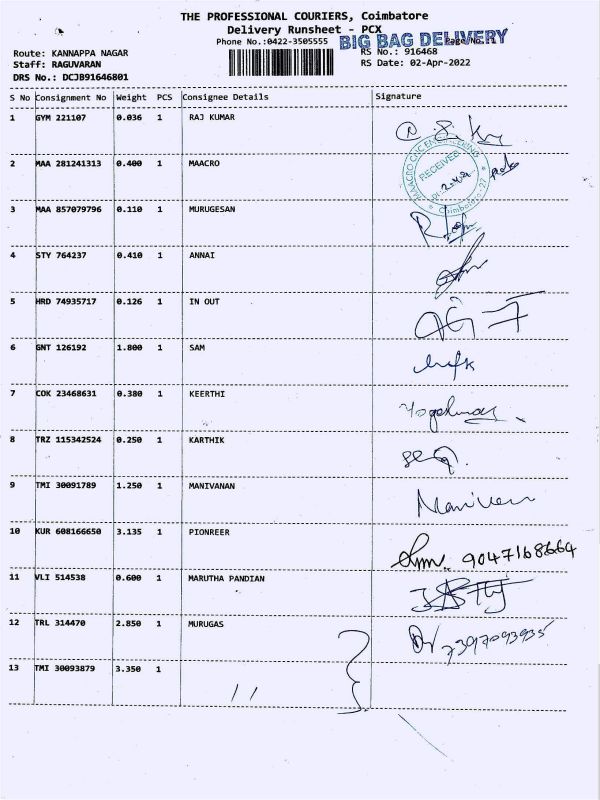 THE PROFESSIONAL COURIERS, Coimbatore
Delivery Runsheet - PCX
Phone No.:0422-3505555
BIG BAG DELIVERY
Page No.
Route: KANNAPPA NAGAR
RS No.: 916468
Staff: RAGUVARAN
RS Date: 02-Apr-2022
DRS No.: DCJB91646801
S No Consignment No Weight PCS Consignee Details Signature
1 GYM 221107 0.036 1 RAJ KUMAR
2 MAA 281241313 0.400 1 MAACRO
MAACRO CNC ENGINEERING
RECEIVED
Coimbatore-27
3 MAA 857079796 0.110 1 MURUGESAN
4 STY 764237 0.410 1 ANNAI
5 HRD 74935717 0.126 1 IN OUT
6 GNT 126192 1.800 1 SAM
7 COK 23468631 0.380 1 KEERTHI
8 TRZ 115342524 0.250 1 KARTHIK
9 TMI 30091789 1.250 1 MANIVANAN
10 KUR 608166650 3.135 1 PIONREER 9047168664
11 VLI 514538 0.600 1 MARUTHA PANDIAN
12 TRL 314470 2.850 1 MURUGAS 7397093935
13 TMI 30093879 3.350 1 "